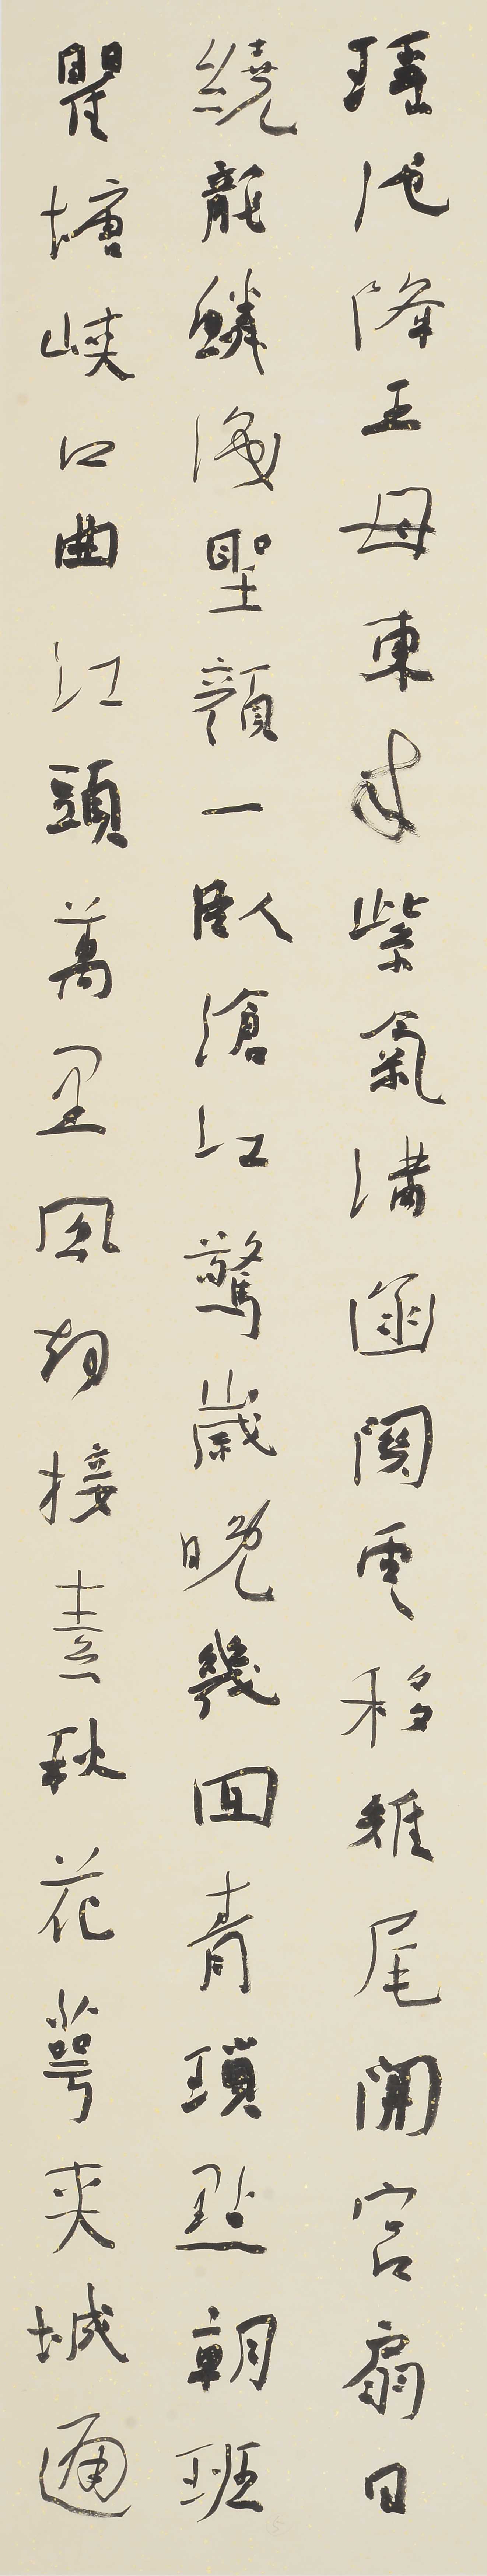 瑤池降王母東来紫氣滿函關雲移雉尾開宮扇日
繞龍鱗識聖顏一臥滄江驚歲晚幾回青瑣點朝班
瞿塘峽口曲江頭萬里風烟接素秋花萼夾城通